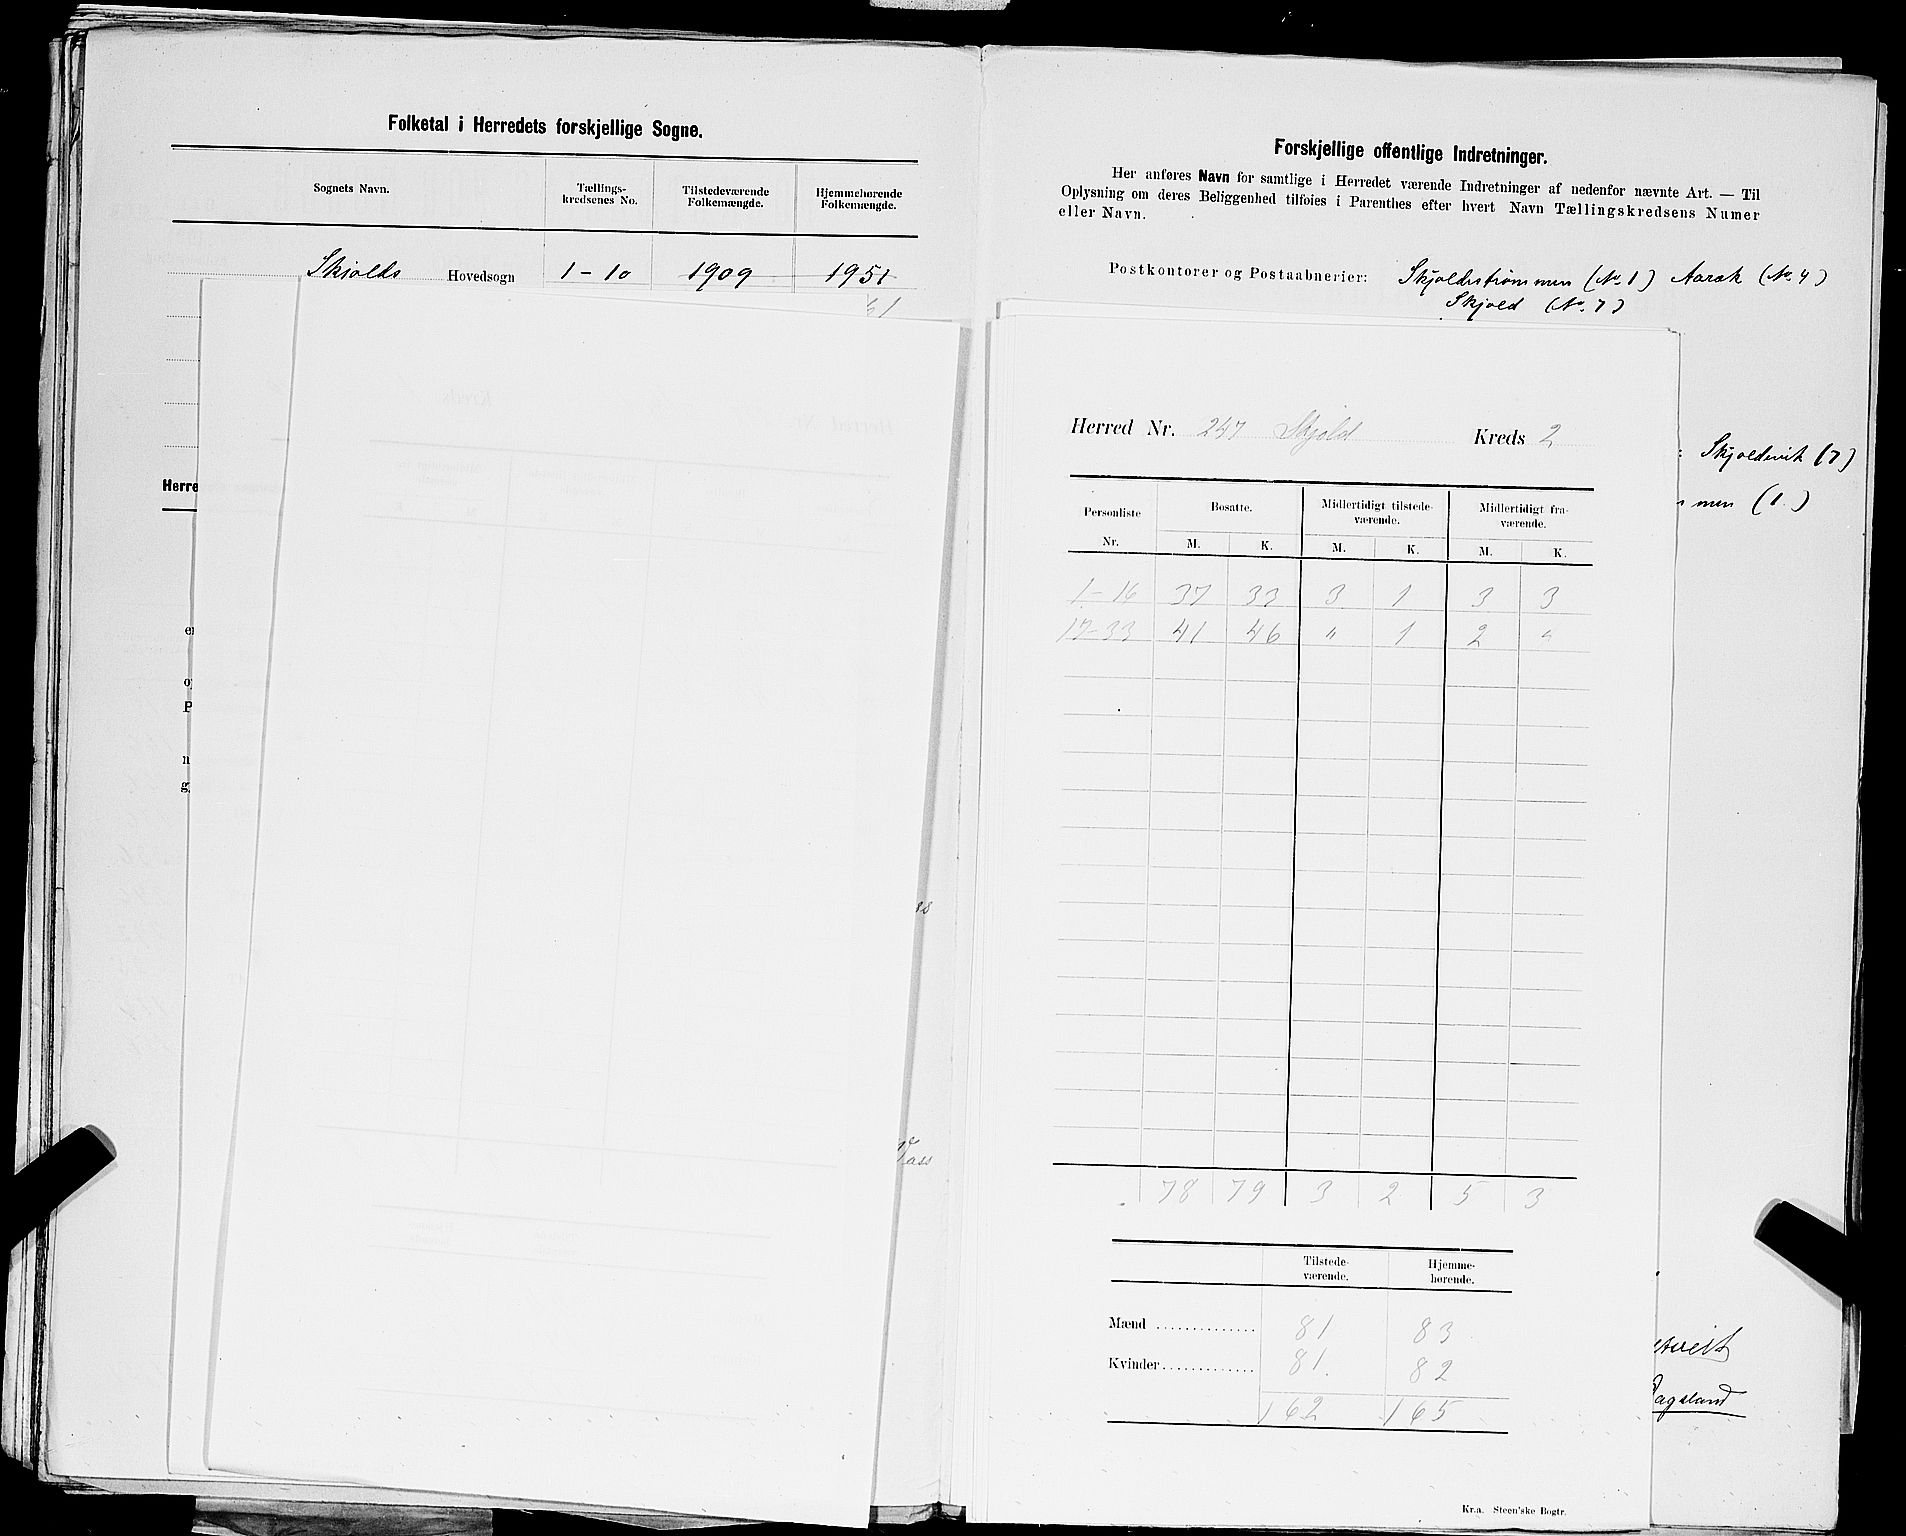 Folketal i Herredets forskjellige Sogne.
Sognets Navn. Tællings-kredsenes No. Tilstedeværende Folkemængde. Hjemmehørende Folkemængde.
Skjolds Hovedsogn 1-10 1909 1951
Herre
Forskjellige offentlige Indretninger.
Her anføres Navn for samtlige i Herredet værende Indretninger af nedenfor nævnte Art. — Til
Oplysning om deres Beliggenhed tilføies i Parenthes efter hvert Navn Tællingskredsens Numer
eller Navn.
Postkontorer og Postaabnerier: Skjoldestrømmen (No. 1) Aarak (No. 4)
Skjold (No. 7)
Skjoldevik (7)
men (1.)
Herred Nr. 247 Skjold Kreds 2
Personliste Nr. Bosatte. Midlertidigt tilstede-værende. Midlertidigt fra-værende.
M. K. M. K. M. K.
1-16 37 33 3 1 3 3
17-33 41 46 " 1 2 "
78 79 3 2 5 3
Tilstede-værende. Hjemme-hørende.
Mænd 81 83
Kvinder 81. 82
162 165
Kr.a. Steen'ske Bogtr.